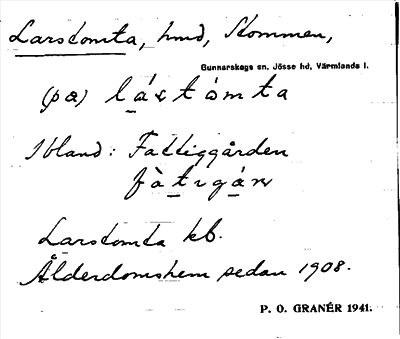 Larstomta, hmd, Stommen,
Gunnarskogs sn, Jösse hd, Värmlands l.
(pa) lástómta
Ibland: Fattiggården
fàtıgáṛn
Larstomta kb.
Ålderdomshem sedan 1908.
P. O. GRANÉR 1941.